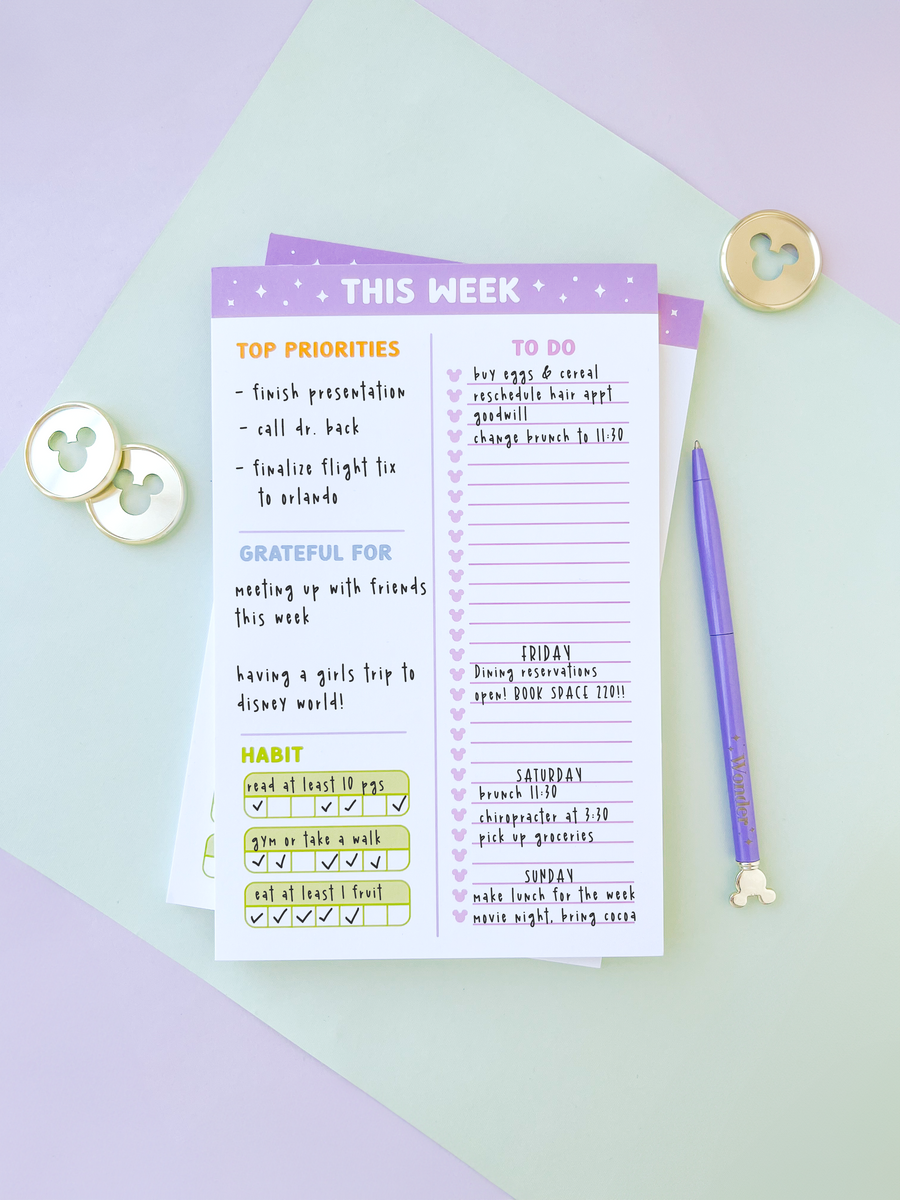 THIS WEEK
TOP PRIORITIES
- finish presentation
- call dr. back
- finalize flight tix
to orlando
GRATEFUL FOR
meeting up with friends
this week
having a girls trip to
disney world!
HABIT
read at least 10 pgs
gym or take a walk
eat at least 1 fruit
TO DO
buy eggs & cereal
reschedule hair appt
goodwill
change brunch to 11:30
FRIDAY
Dining reservations
open! BOOK SPACE 220!!
SATURDAY
brunch 11:30
chiropracter at 3:30
pick up groceries
SUNDAY
make lunch for the week
movie night, bring cocoa
Wonder